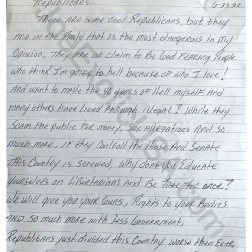 Republicans 6-25-22
There are some cool Republicans, but they
are in the Party that is the most dangerous in my
Opinion, They are or claim to be God Fearing People
who think I'm going to hell because of who I love!
And want to make the 40 years of Hell myself and
many others have lived through illegal? While they
scam the public for money, sex allegations and so
much more. if they controll the House and Senate
This Country is screwed, Why dont you Educate
yourselves on Libietarians and Be Free for once?
We will give you your Guns, Rights to your Bodies
AND so much more with less Government,
Republicans just divided this Country worse then Ever